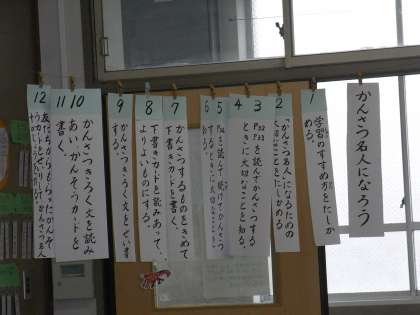 かんさつ名人になろう
1
学習のすすめ方をたしか
める。
2
「かんさつ名人」になるための
3
4
P22
P23を読んでかんさつする
ときに大切なことを知る。
5
6
7
かんさつするものをきめて
下書きカードを書く。
8
下書きカードを読みあって、
よりよいものにする。
9
かんさつきろく文をせい書
する。
10
11
かんさつきろく文を読み
あい、かんそうカードを
書く。
12
友だちからもらったかんそ